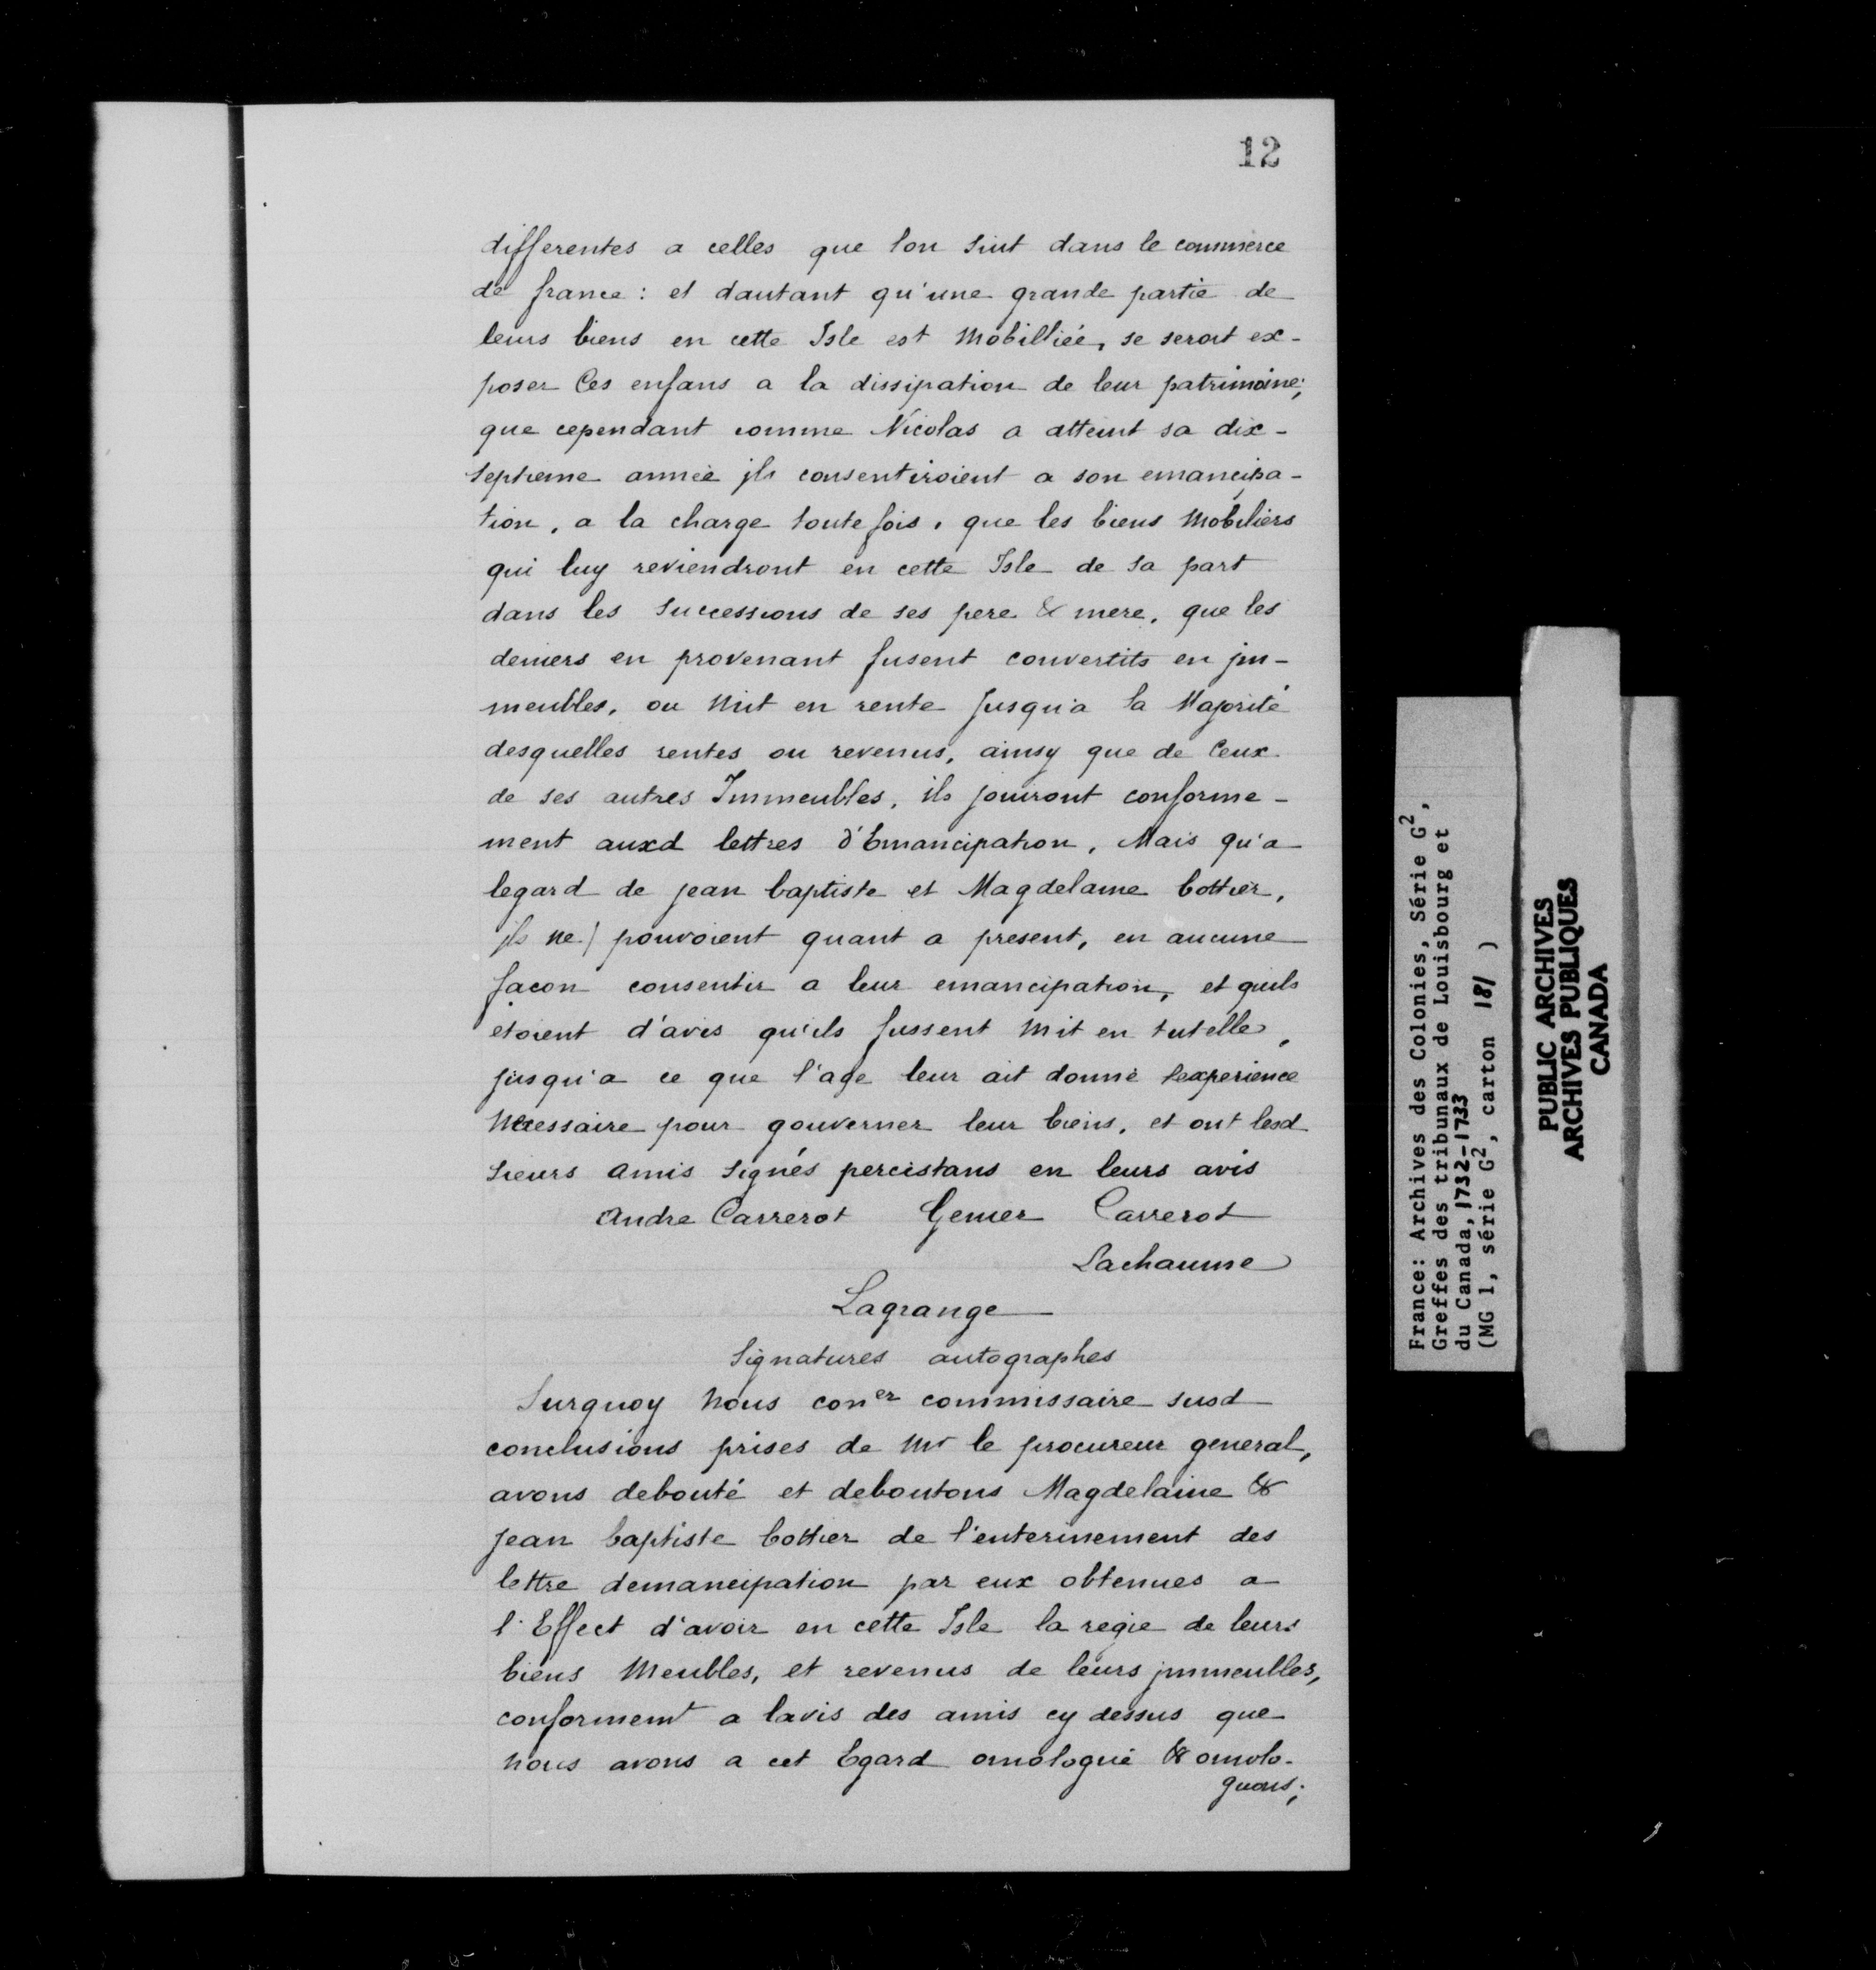 12
differentes a celles que lon suit dans le commerce
de france : et dautant qu'une grande partie de
leurs biens en cette Isle est Mobilliée, se seroit ex-
poser Ces enfans a la dissipation de leur patrimoine;
que cependant comme Nicolas a atteint sa dix-
septieme année jls consentiroient a son emancipa-
tion, a la charge toute fois, que les biens Mobiliers
qui luy reviendront en cette Isle de sa part
dans les Successions de ses pere & mere, que les
deniers en provenant fusent convertits en jm-
meubles, ou Mit en rente Jusqu'a la Majorité
desquelles rentes ou revenus, ainsy que de Ceux
de ses autres Immeubles, ils jouiront conforme-
ment auxd lettres d'Emancipation, Mais qu'a
legard de jean baptiste et Magdelaine bottier,
jls ne) pouvoient quant a present, en aucune
façon consentir a leur emancipation, et quils
etoient d'avis qu'ils fussent Mit en tutelle,
jusqu'a ce que l'age leur ait donné lexperience
Necessaire pour gouverner leur biens, et ont lesd
Sieurs Amis Signés percistans en leurs avis
Andre Carrerot Genier Carrerot
Lachaume
Lagrange
Signatures autographes
Surquoy Nous coner commissaire susd
conclusions prises de Mr le procureur general,
avons debouté et deboutons Magdelaine &
Jean baptiste bottier de l'enterinement des
lettre demancipation par eux obtenues a
l'Effect d'avoir en cette Isle la regie de leurs
biens Meubles, et revenus de leurs jmmeubles,
conformemt a lavis des amis cy dessus que
Nous avons a cet Egard omologué & omolo-
guons;
France: Archives des Colonies, Série G2,
Greffes des tribunaux de Louisbourg et
du Canada, 1732-1733
(MG 1, série G2, carton 181 )
PUBLIC ARCHIVES
ARCHIVES PUBLIQUES
CANADA